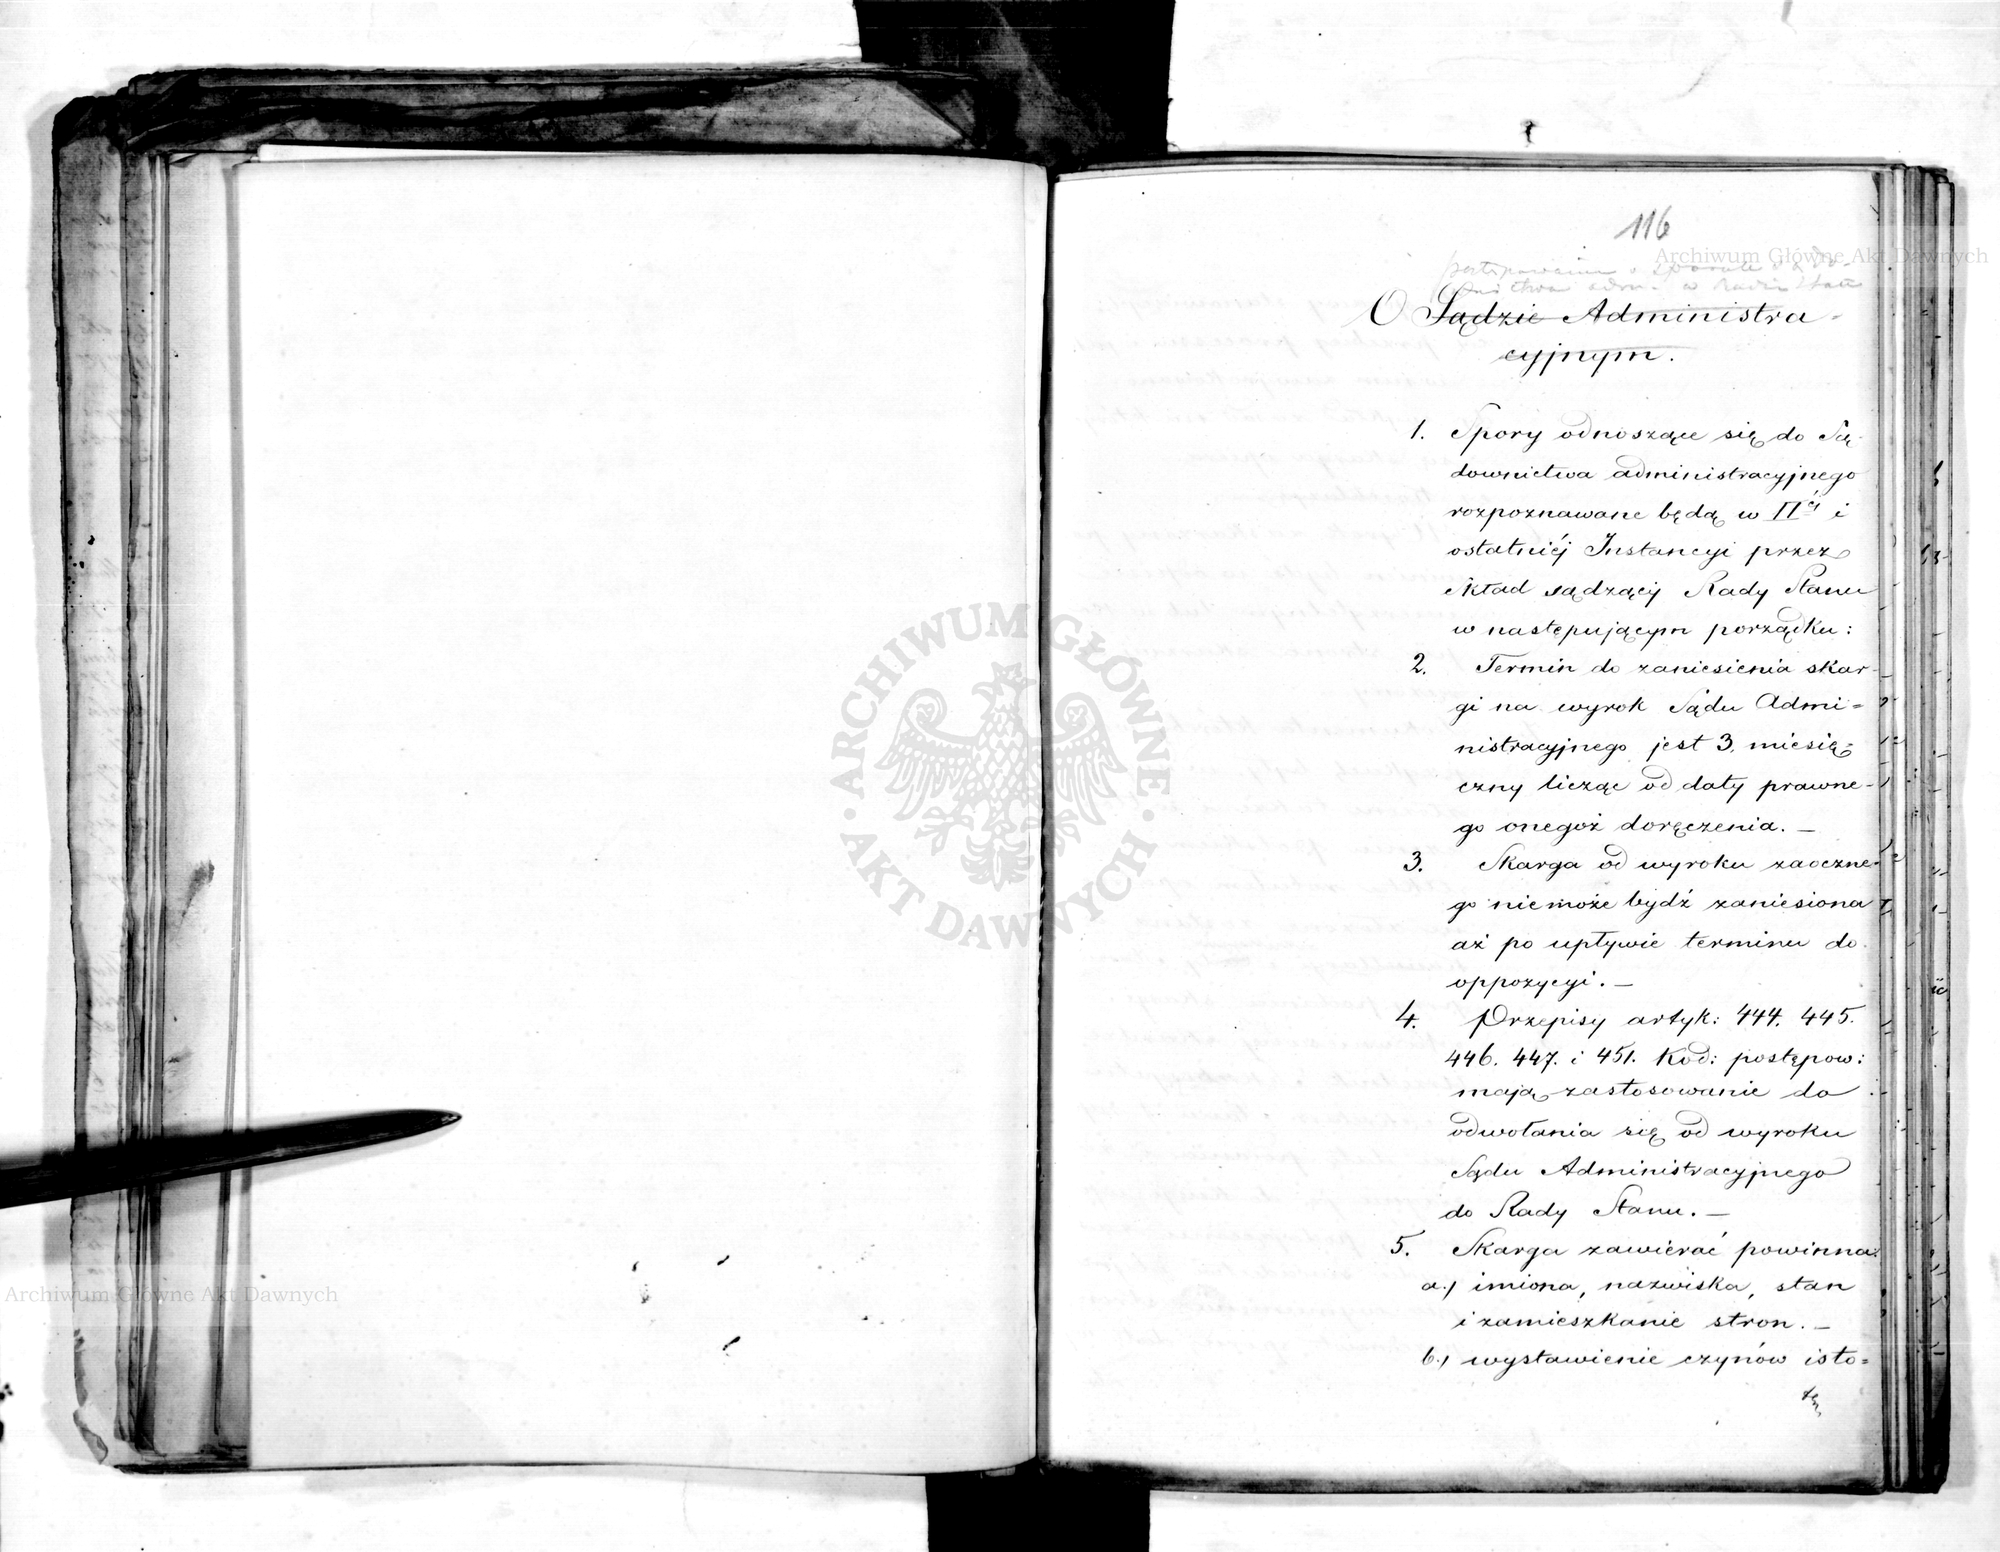 116
Archiwum Główne Akt Dawnych
postępowaniu w
adm. w Radzie Stanu
O Sądzie Administra-
cyjnym.
1. Spory odnoszące się do Są-
downictwa administracyjnego
rozpoznawane będą w IIéj i
ostatniéj Instancyi przez
skład sądzący Rady Stanu
w następującym porządku:
2. Termin do zaniesienia skar-
gi na wyrok Sądu Admi=
nistracyjnego jest 3. miesię=
czny licząc od daty prawne-
go onegoż doręczenia. —
3. Skarga od wyroku zaoczne-
go nie może bydź zaniesiona
aż po upływie terminu do
oppozycyi. —
4. Przepisy artyk: 444. 445.
446. 447. i 451. Kod: postępow:
mają zastosowanie do
odwołania się od wyroku
Sądu Administracyjnego
do Rady Stanu. —
5. Skarga zawierać powinna:
a.) imiona, nazwiska, stan
i zamieszkanie stron. —
b.) wystawienie czynów isto=
ARCHIWUM GŁÓWNE · AKT DAWNYCH ·
Archiwum Główne Akt Dawnych